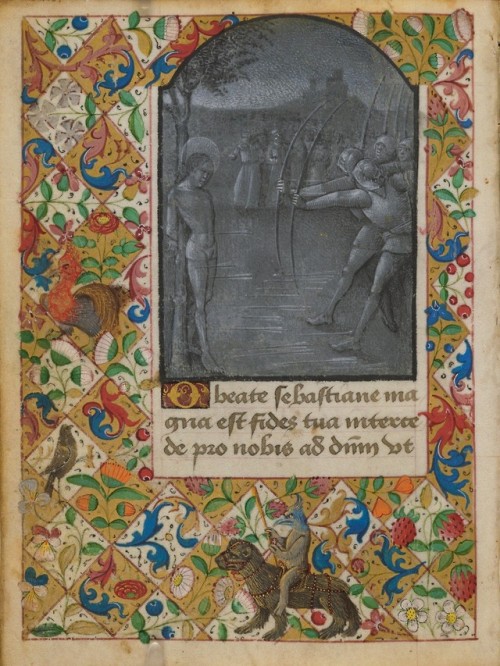 O beate sebastiane ma
gna est fides tua interce
de pro nobis ad dn̄m vt